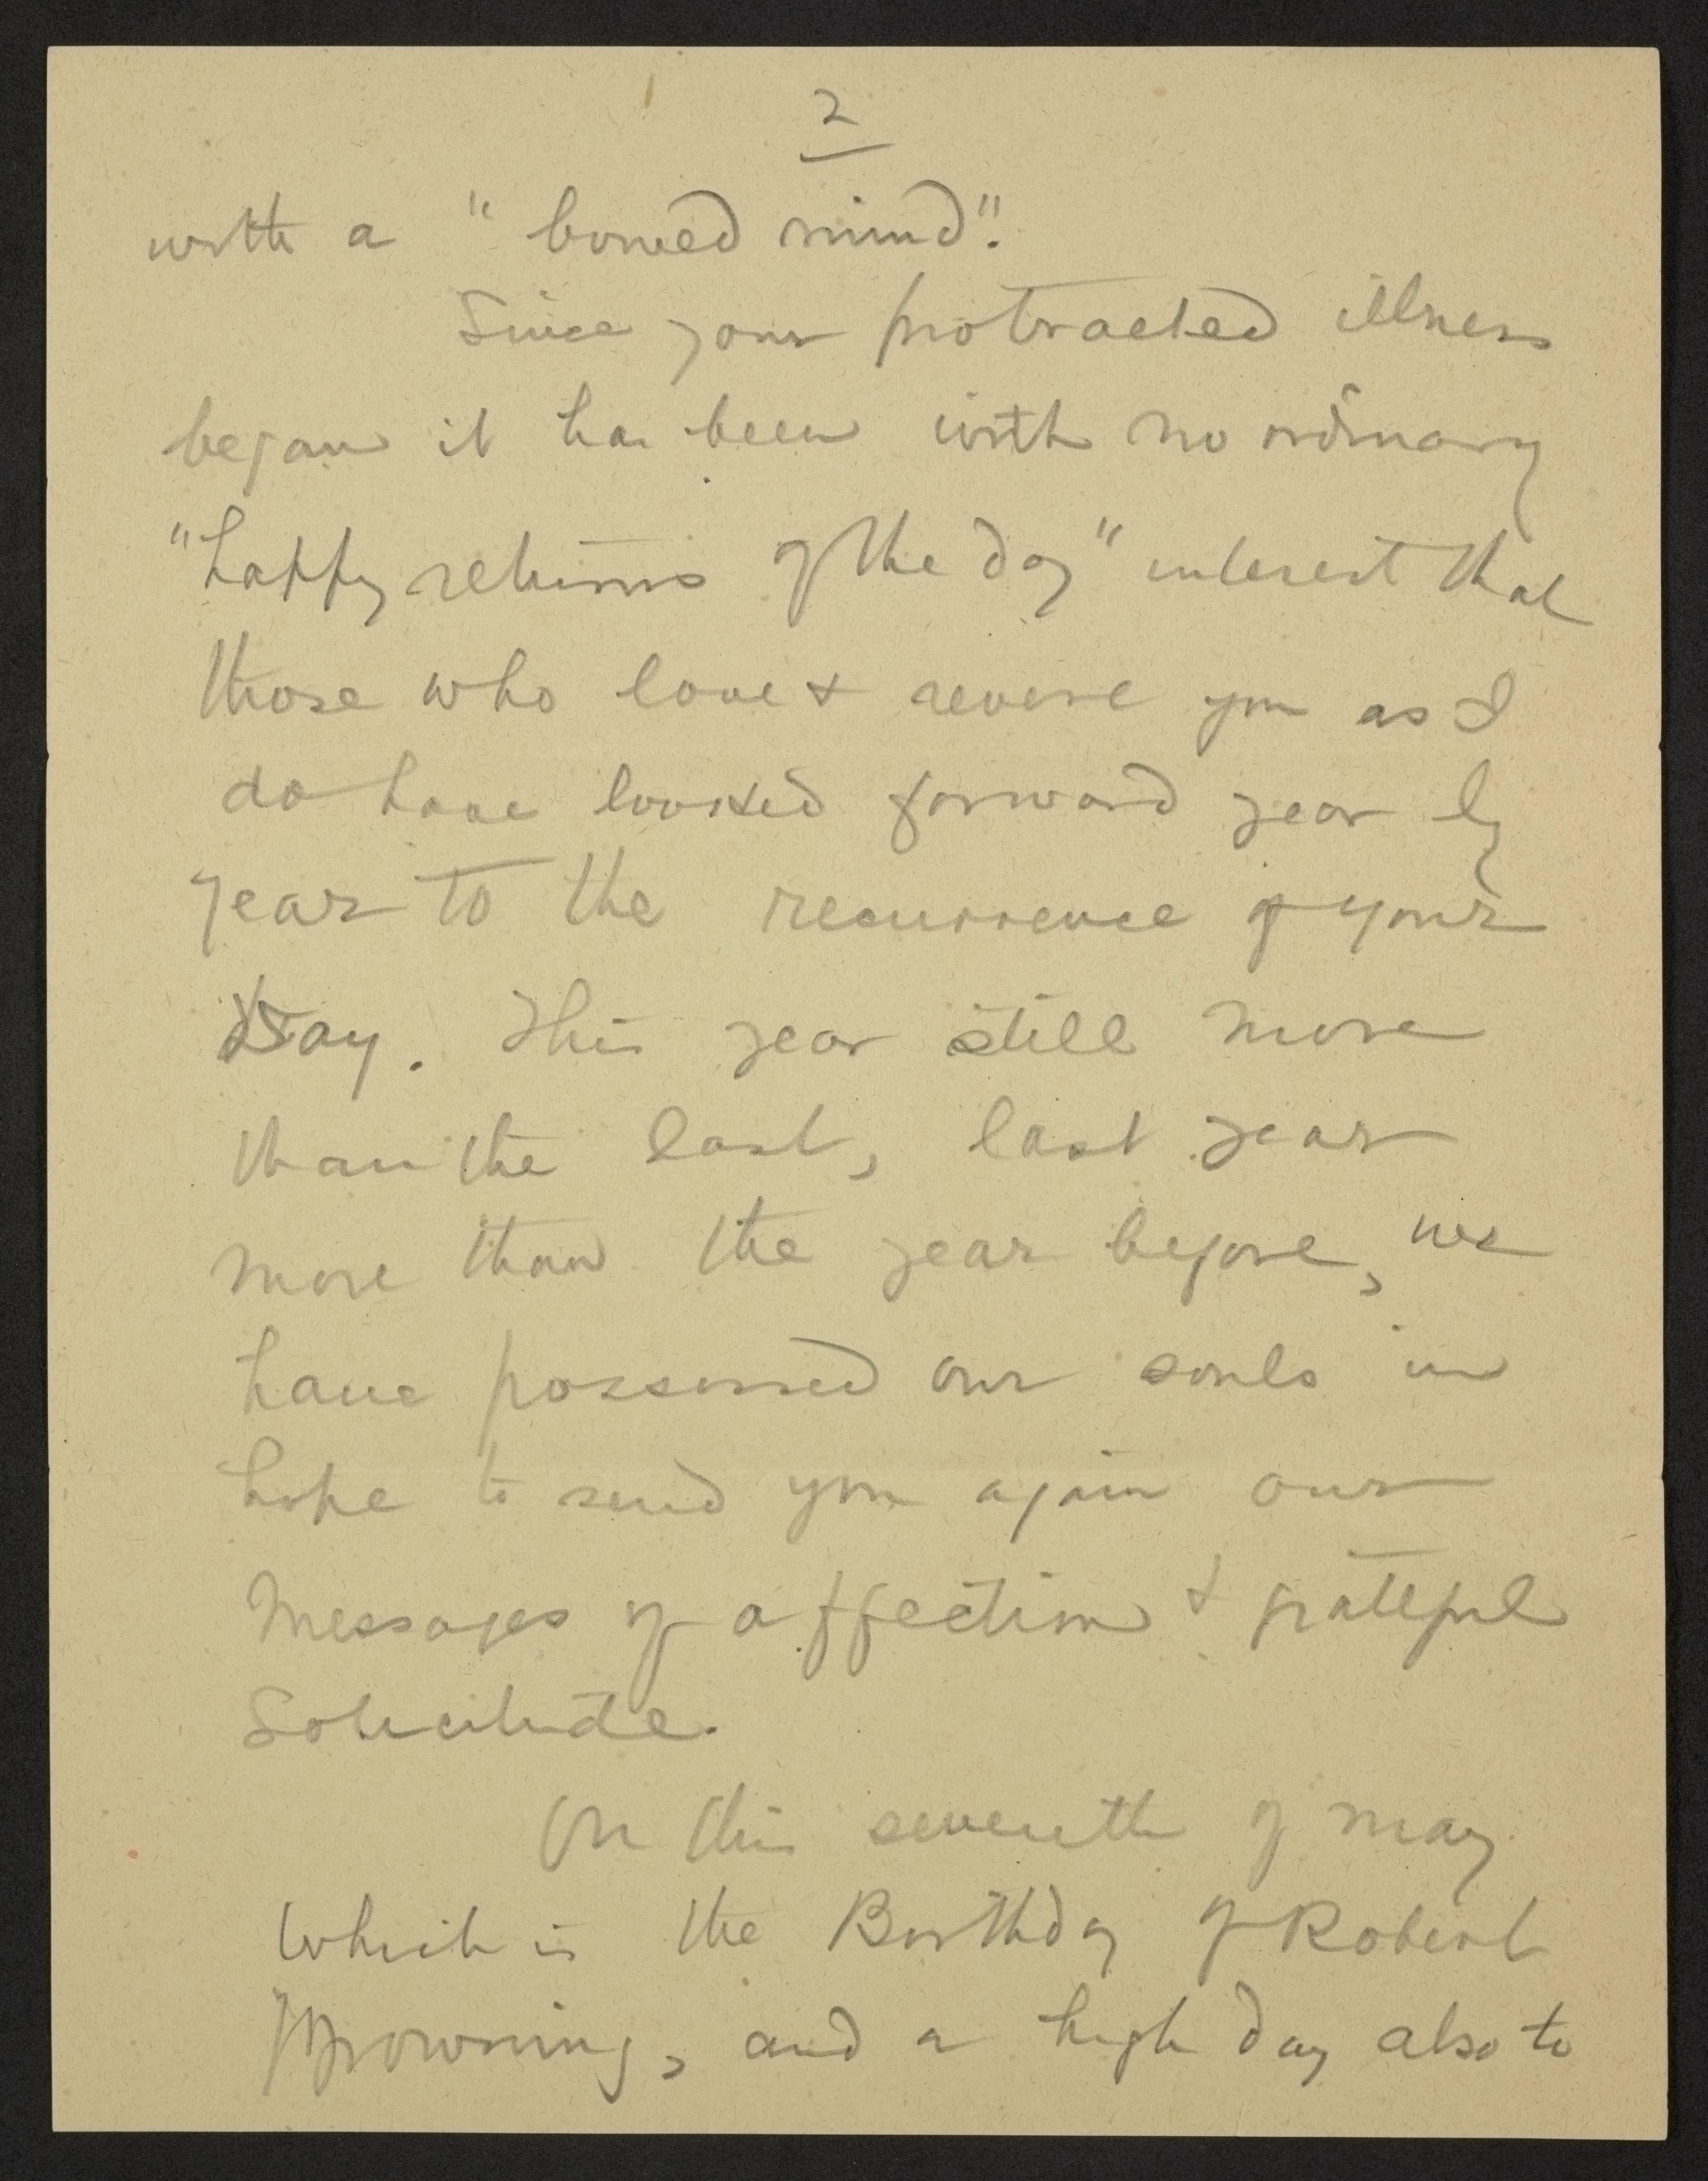 2
with a "bowed mind".
Since your protracted illness
began it has been with no ordinary
"happy returns of the day" interest that
those who love & revere you as I
do have looked forward year by
year to the recurrence of your
Day. This year still more
than the last, last year
more than the year before, we
have possessed our souls in
hope to send you again our
messages of affection & grateful
solicitude.
On this seventh of May
which is the Birthday of Robert
Browning, and a high day also to